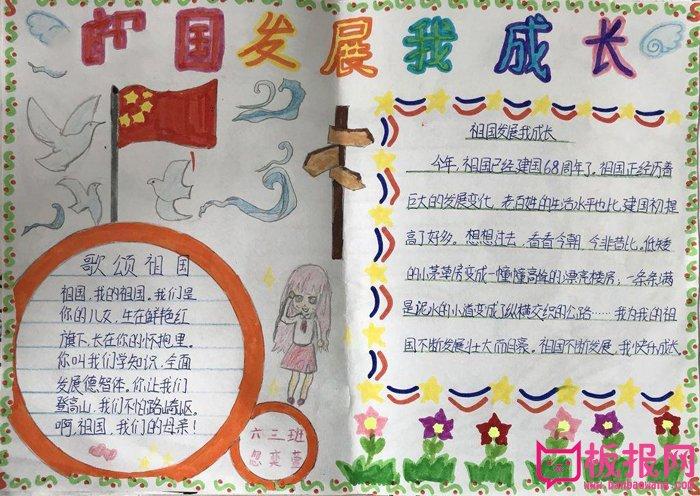 祖国发展我成长
歌颂祖国
祖国,我的祖国。我们是
你的儿女,生在鲜艳红
旗下,长在你的怀抱里。
你叫我们学知识,全面
发展德智体。你让我们
登高山,我们不怕路崎岖。
啊,祖国,我们的母亲!
六三班
祖国发展我成长
今年,祖国已经建国68周年了。祖国正经历着
巨大的发展变化,老百姓的生活水平也比建国初提
高了好多。想想过去,看看今朝,今非昔比。低矮
的小茅草房变成一幢幢高耸的小漂亮楼房;一条条满
是泥水的小道变成了纵横交织的公路……我为我的祖
国不断发展壮大而自豪。祖国不断发展,我快乐成长
板报网
www.banbaowang.com